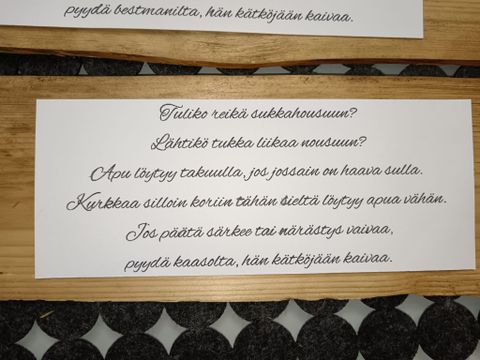 pyydä bestmanilta, hän kätköjään kaivaa.
Tuliko reikä sukkahousuun?
Lähtikö tukka liikaa nousuun?
Apu löytyy takuulla, jos jossain on haava sulla.
Kurkkaa silloin koriin tähän sieltä löytyy apua vähän.
Jos päätä särkee tai närästys vaivaa,
pyydä kaasolta, hän kätköjään kaivaa.